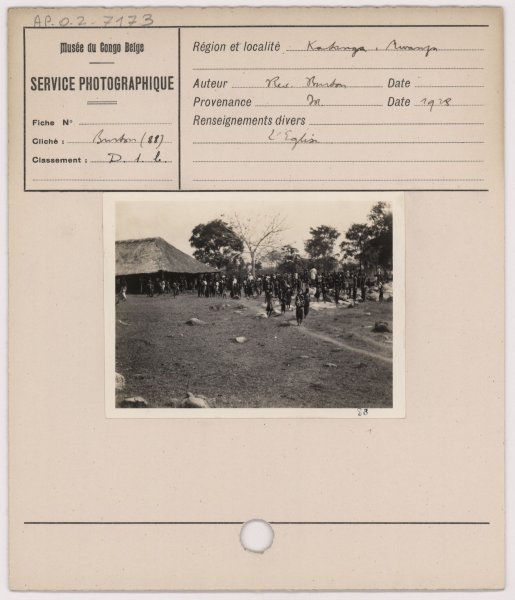 AP.0.2-7173
Musée du Congo Belge
SERVICE PHOTOGRAPHIQUE
Fiche N°
Cliché : Burton (88)
Classement : D. 1. b.
Région et localité Katanga, Mwanza
Auteur Rev. Burton Date
Provenance Date 1928
Renseignements divers
L'Eglise
88